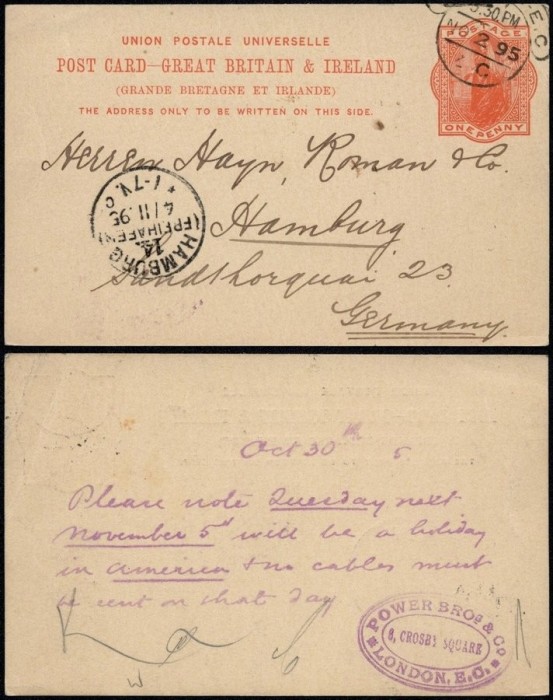 UNION POSTALE UNIVERSELLE
POST CARD—GREAT BRITAIN & IRELAND
(GRANDE BRETAGNE ET IRLANDE)
THE ADDRESS ONLY TO BE WRITTEN ON THIS SIDE.
5.30 PM
E.C
NO 2 95
C
POSTAGE
ONE PENNY
Herren Hayn, Roman & Co.
Hamburg
Sandthorquai 23
Germany.
HAMBURG
14
(FREIHAFEN)
4/11.95
1-7 N.
Oct 30th 5
Please note Tuesday next
November 5th will be a holiday
in america & no cables must
be sent on that day
POWER BROS & CO
6, CROSBY SQUARE
LONDON, E.C.